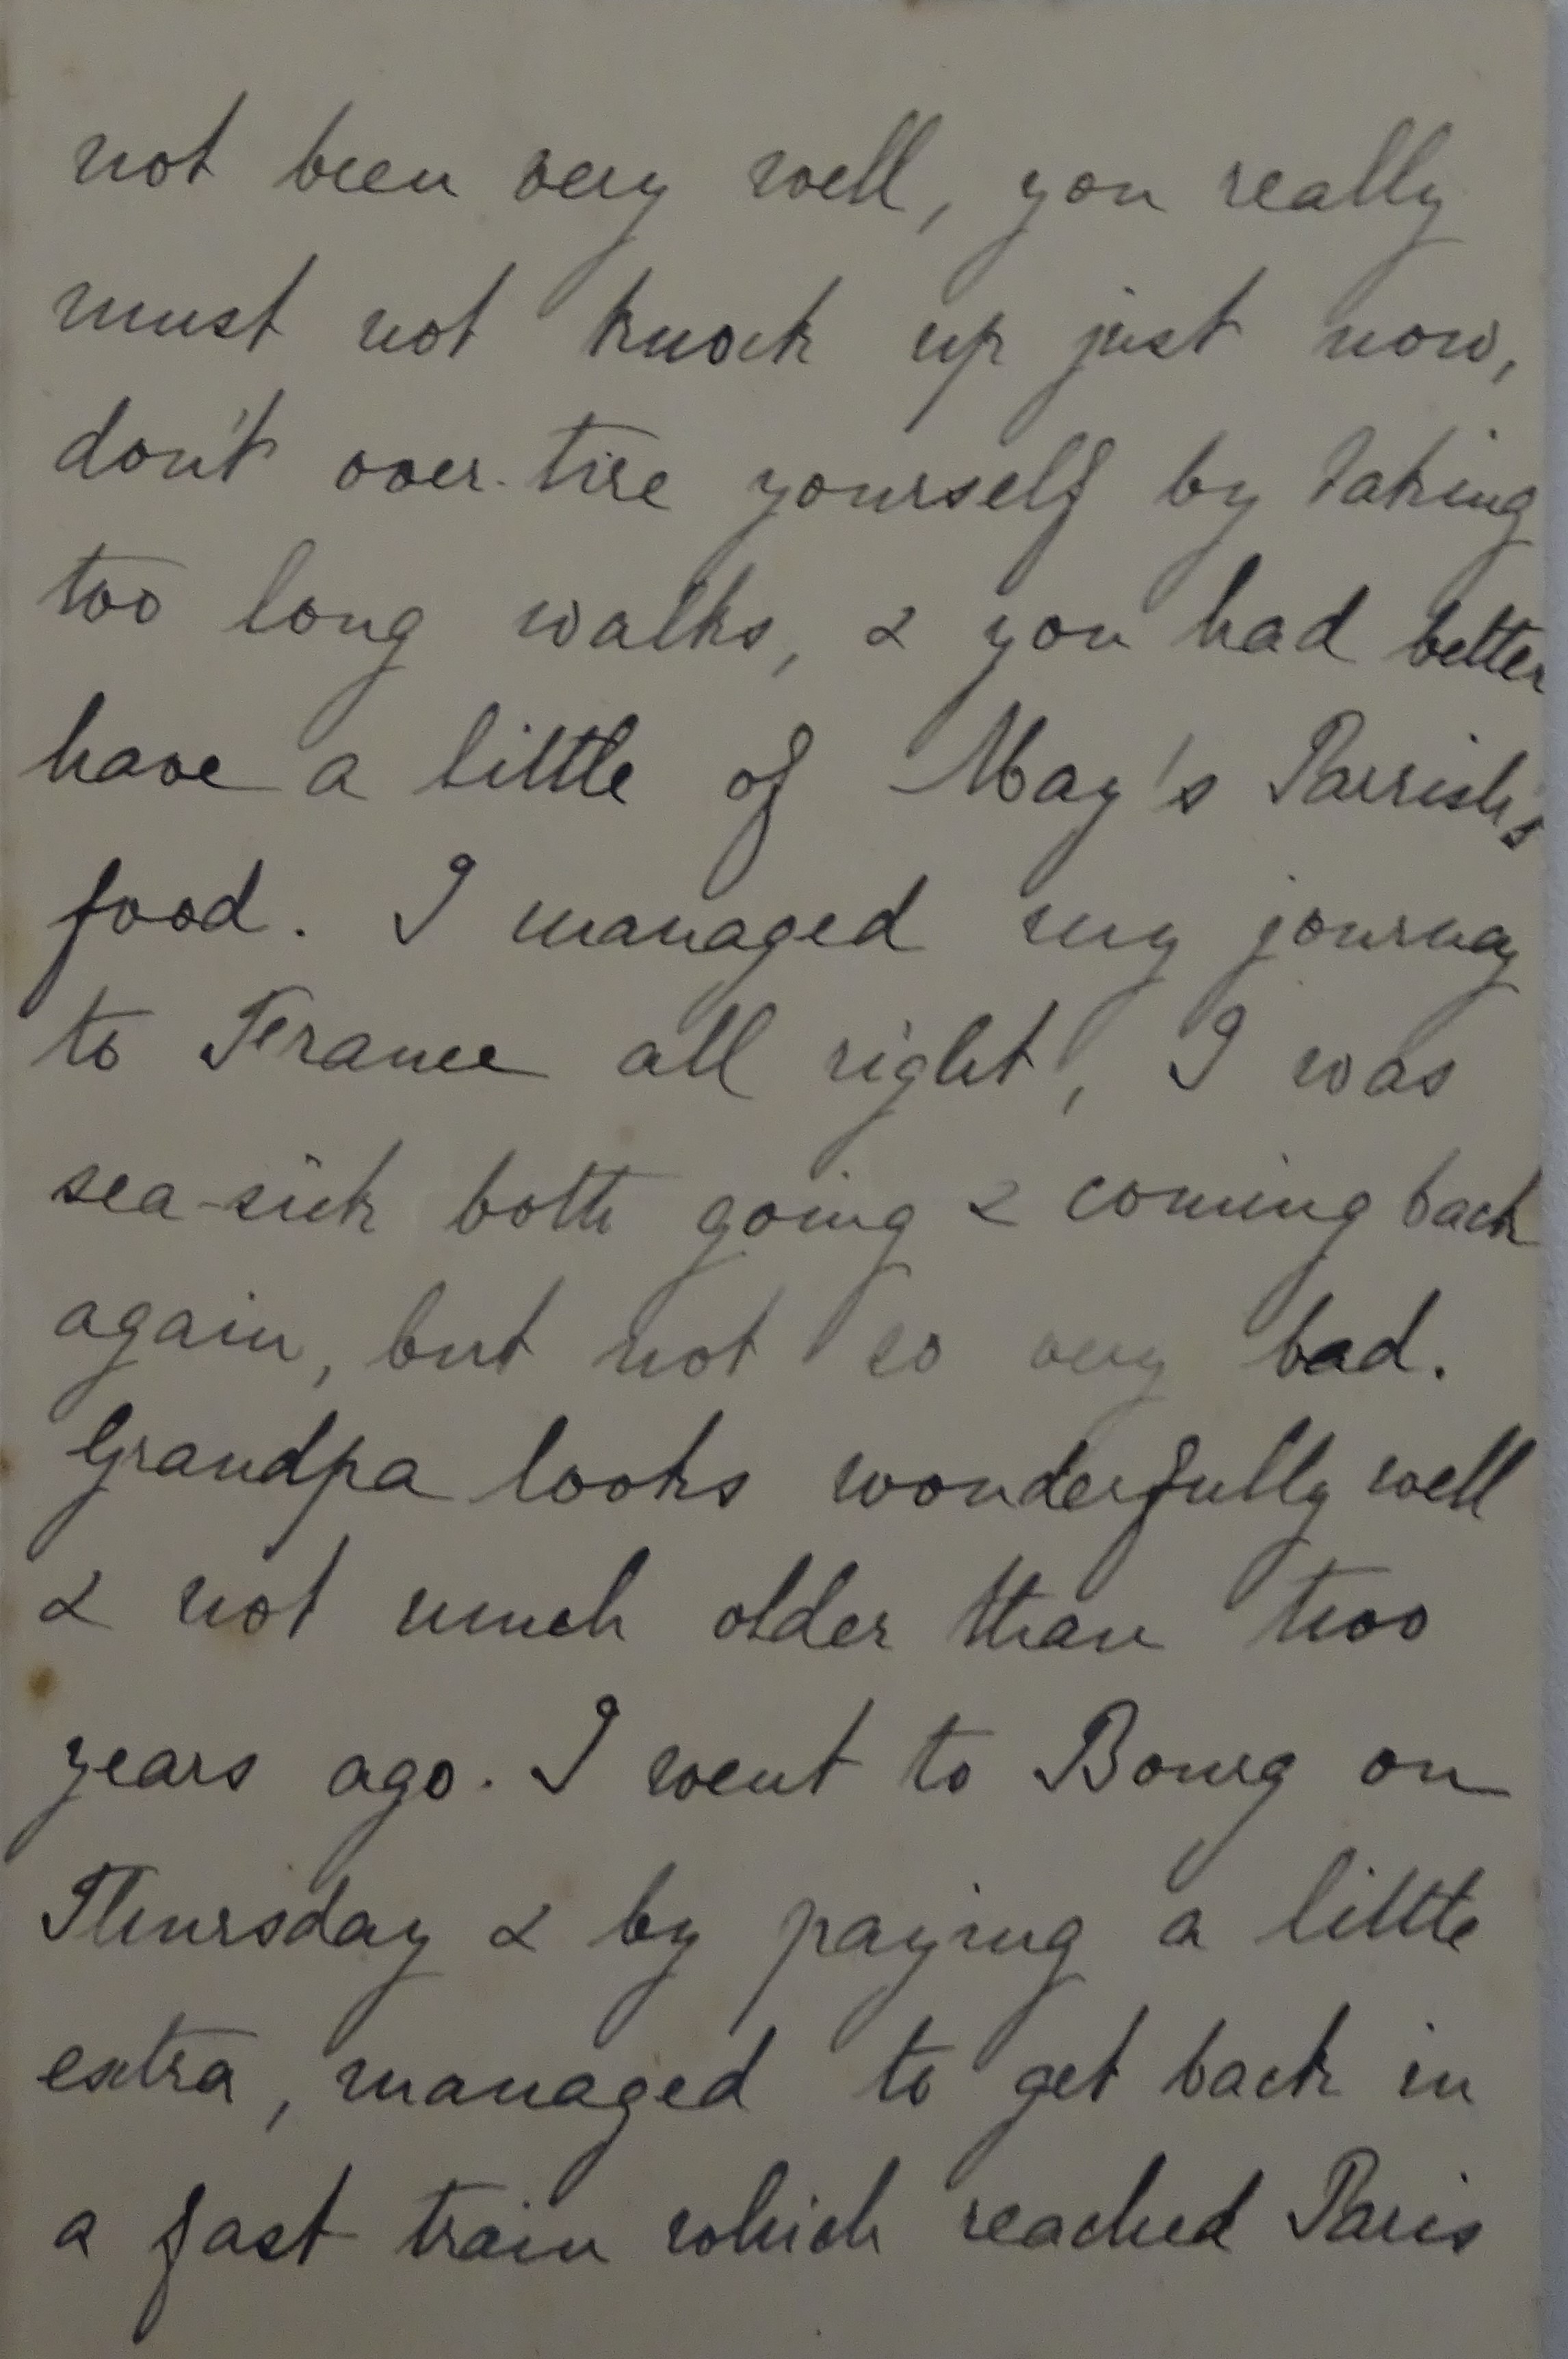 not been very well, you really
must not knock up just now,
don't over-tire yourself by taking
too long walks, & you had better
have a little of May's Parrish's
food. I managed my journey
to France all right, I was
sea-sick both going & coming back
again, but not so very bad.
Grandpa looks wonderfully well
& not much older than two
years ago. I went to Bourg on
Thursday & by paying a little
extra, managed to get back in
a fast train which reached Paris